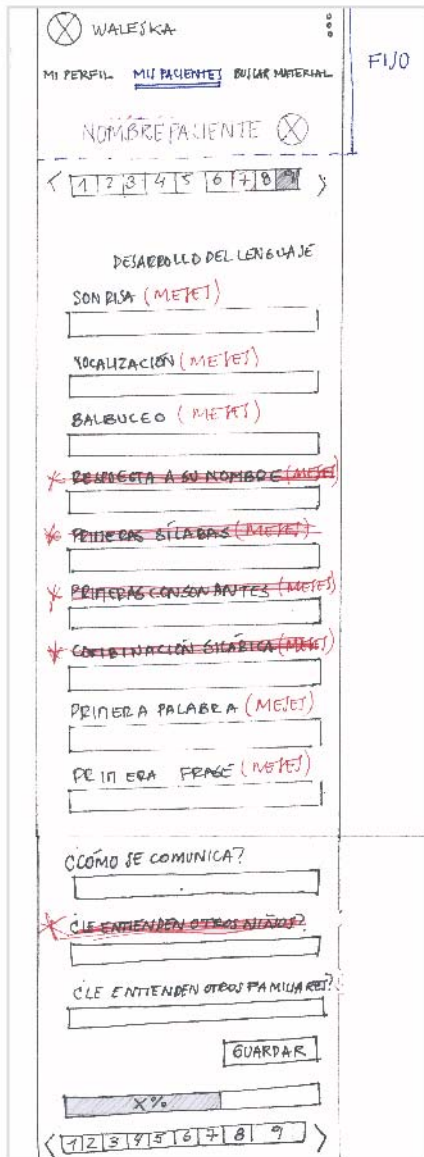 WALESKA
MI PERFIL MIS PACIENTES BUSCAR MATERIAL
FIJO
NOMBRE PACIENTE
< 1 2 3 4 5 6 7 8 9 >
DESARROLLO DEL LENGUAJE
SONRISA (MESES)
VOCALIZACIÓN (MESES)
BALBUCEO (MESES)
* RESPUESTA A SU NOMBRE (MESES)
* PRIMERAS SÍLABAS (MESES)
* PRIMERAS CONSONANTES (MESES)
* COMBINACIÓN SILÁBICA (MESES)
PRIMERA PALABRA (MESES)
PRIMERA FRASE (MESES)
¿CÓMO SE COMUNICA?
* ¿LE ENTIENDEN OTROS NIÑOS?
¿LE ENTIENDEN OTROS FAMILIARES?
GUARDAR
X%
< 1 2 3 4 5 6 7 8 9 >